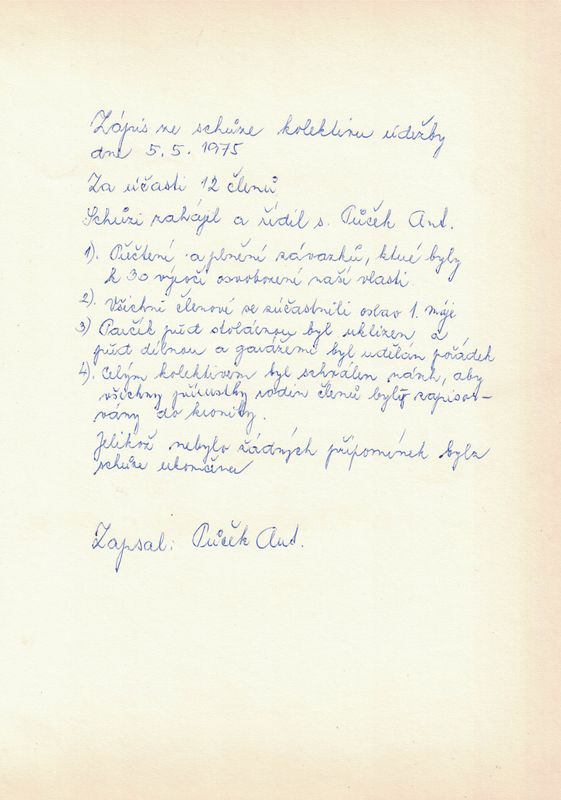 Zápis ze schůze kolektivu údržby
dne 5.5. 1975
Za účasti 12 členů
Schůzi zahájil a řídil s. Půček Ant.
1). Přečtení a plnění závazků, které byly
k 30 výročí osvobození naší vlasti
2). Všichni členové se zúčastnili oslav 1. máje
3) Parčík před stolárnou byl uklizen a
před dílnou a garážemi byl udělán pořádek
4). Celým kolektivem byl schválen návrh, aby
všechny přírustky rodin členů byly zapisov-
vány do kroniky.
Jelikož nebylo žádných připomínek byla
schůze ukončena
Zapsal: Půček Ant.